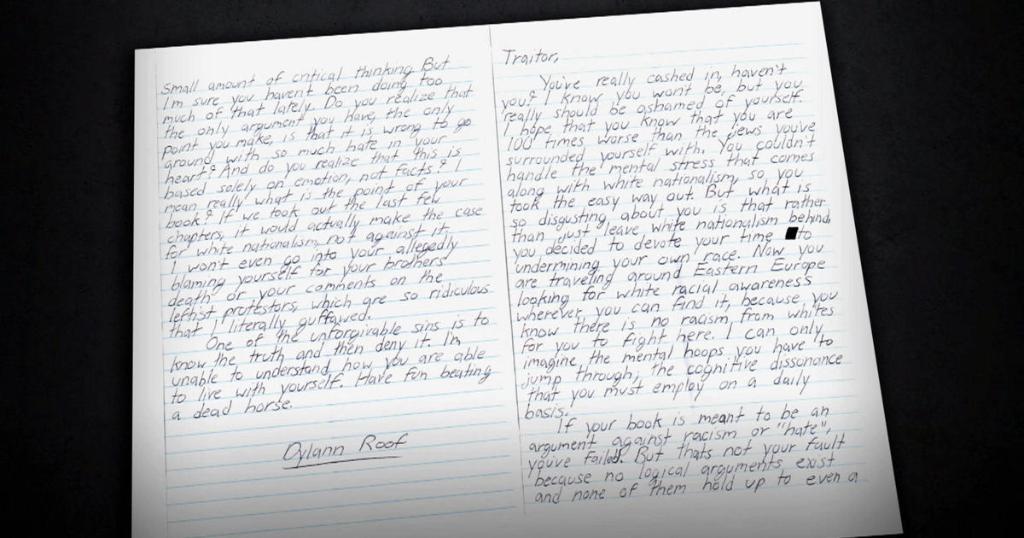 Traitor,
You've really cashed in, haven't
you? I know you wont be, but you
really should be ashamed of yourself.
I hope that you know that you are
100 times worse than the jews you've
surrounded yourself with. You couldn't
handle the mental stress that comes
along with white nationalism, so you
took the easy way out. But what is
so disgusting about you is that rather
than just leave white nationalism behind
you decided to devote your time to
undermining your own race. Now you
are traveling around Eastern Europe
looking for white racial awareness
wherever you can find it, because you
know there is no racism from whites
for you to fight here. I can only
imagine the mental hoops you have to
jump through, the cognitive dissonance
that you must employ on a daily
basis.
If your book is meant to be an
argument against racism or "hate",
youve failed. But thats not your fault
because no logical arguments exist
and none of them hold up to even a
small amount of critical thinking But
I'm sure you haven't been doing too
much of that lately. Do you realize that
the only argument you have, the only
point you make, is that it is wrong to go
around with so much hate in your
heart? And do you realize that this is
based solely on emotion, not facts? I
mean really what is the point of your
book? If we took out the last few
chapters, it would actually make the case
for white nationalism, not against it.
I won't even go into your allegedly
blaming yourself for your brothers'
death or your comments on the
leftist protestors, which are so ridiculous
that I literally guffawed.
One of the unforgivable sins is to
know the truth and then deny it. I'm
unable to understand how you are able
to live with yourself. Have fun beating
a dead horse.
Dylann Roof